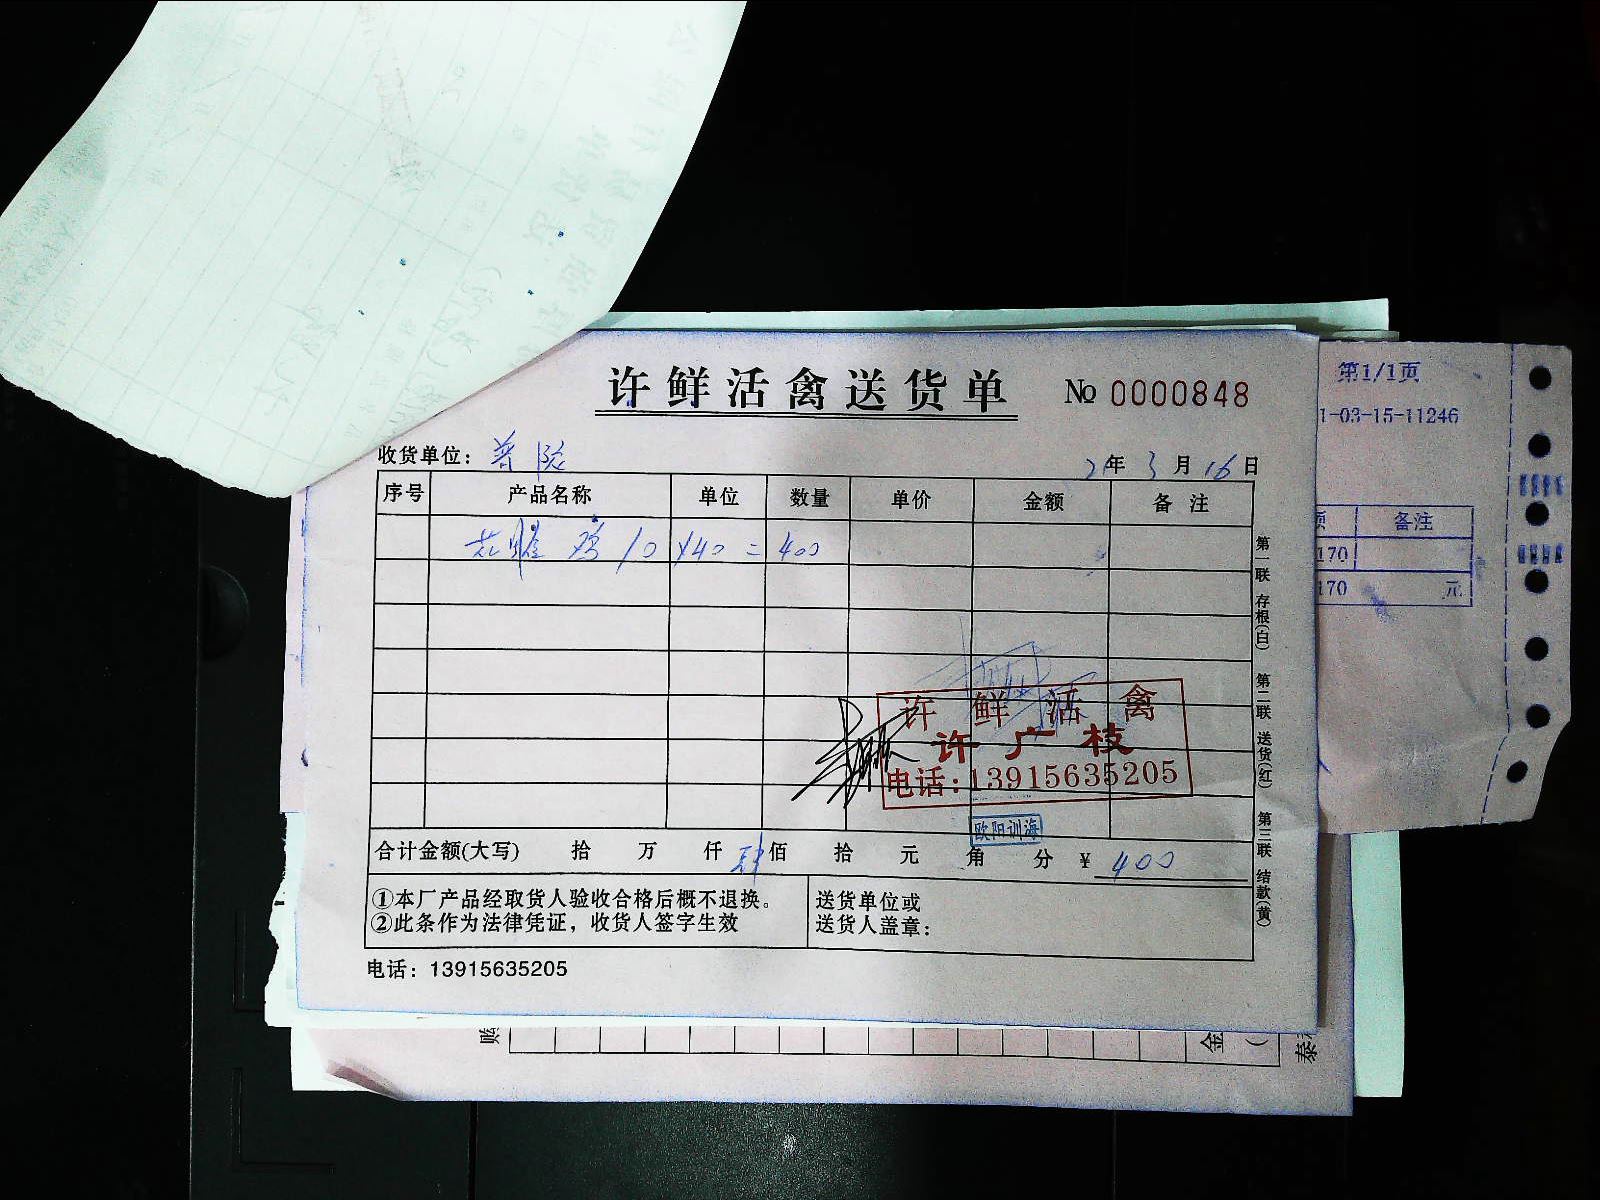 许鲜活禽送货单 № 0000848
收货单位：
21年3月16日
序号 产品名称 单位 数量 单价 金额 备注
鸡 10 ×40 = 400
许鲜活禽
许广枝
电话：13915635205
欧阳训海
合计金额(大写) 拾 万 仟 肆佰 拾 元 角 分 ¥ 400
①本厂产品经取货人验收合格后概不退换。
②此条作为法律凭证，收货人签字生效
送货单位或
送货人盖章：
电话：13915635205
第一联 存根(白) 第二联 送货(红) 第三联 结款(黄)
第1/1页
1-03-15-11246
备注
170
170 元
金
泰